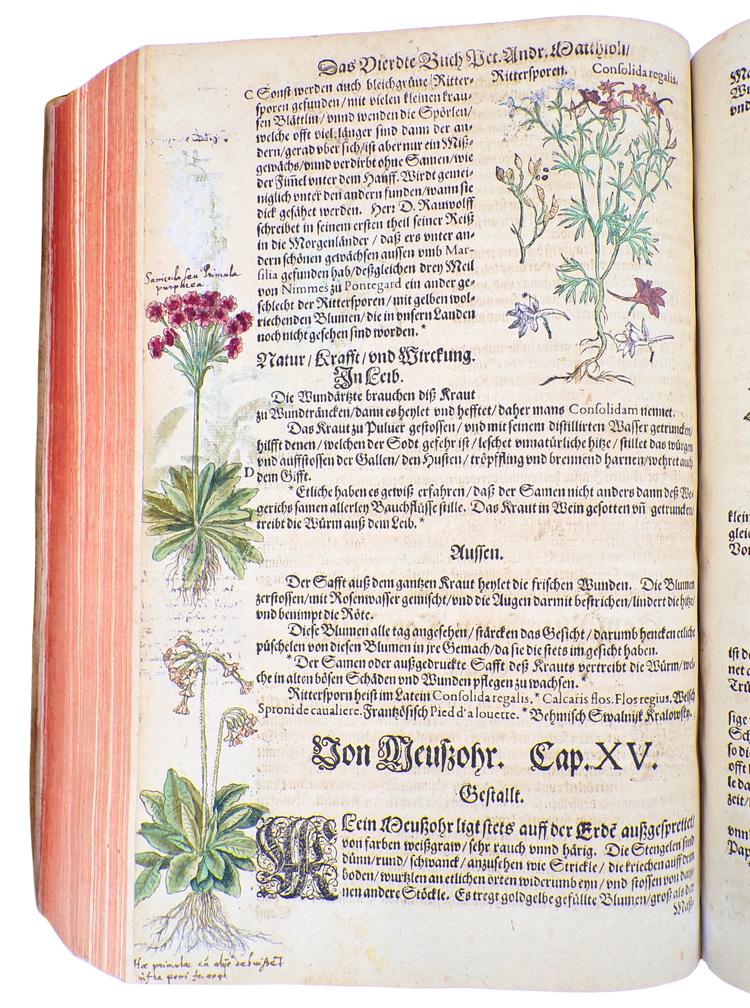 Das Vierdte Buch Pet. Andr. Matthioli/
Rittersporen. Consolida regalis.
C Sonst werden auch bleichgrüne Ritter-
sporen gefunden/mit vielen kleinen krau-
sen Blättlin/vnnd wenden die Spörlen/
welche offt viel länger sind dann der an-
dern/gerad vber sich/ist aber nur ein Miß-
gewächs/vnnd verdirbt ohne Samen/wie
der Fimel vnter dem Hauff. Wirdt gemei-
niglich vnter den andern funden/wann sie
dick gesähet werden. Herr D. Rauwolff
schreibet in seinem ersten theil seiner Reiß
in die Morgenländer/daß ers vnter an-
dern schönen gewächsen aussen vmb Mar-
silia gefunden hab/deßgleichen drey Meil
von Nimmes zu Pontegard ein ander ge-
schlecht der Rittersporen/mit gelben wol-
riechenden Blumen/die in vnsern Landen
noch nicht gesehen sind worden.*
Sanicula seu Primula
purpurea
Natur/Krafft/vnd Wirckung.
In Leib.
Die Wundärtzte brauchen diß Kraut
zu Wundträncken/dann es heylet vnd hefftet/daher mans Consolidam nennet.
Das Kraut zu Puluer gestossen/vnd mit seinem distillirten Wasser getruncken/
hilfft denen/welchen der Sodt gefehr ist/leschet vnnatürliche hitze/stillet das würgen
vnd auffstossen der Gallen/den Husten/tröpffling vnd brennend harnen/wehret auch
D dem Gifft.
*Etliche haben es gewiß erfahren/daß der Samen nicht anders dann deß We-
gerichs samen allerley Bauchflüsse stille. Das Kraut in Wein gesotten vñ getruncken/
treibt die Würm auß dem Leib.*
Aussen.
Der Safft auß dem gantzen Kraut heylet die frischen Wunden. Die Blumen
zerstossen/mit Rosenwasser gemischt/vnd die Augen darmit bestrichen/lindert die hitze/
vnd benimpt die Röte.
Diese Blumen alle tag angesehen/stärcken das Gesicht/darumb hencken etliche
püschelen von diesen Blumen in jre Gemach/da sie die stets im gesicht haben.
*Der Samen oder außgedruckte Safft deß Krauts vertreibt die Würm/wel-
che in alten bösen Schäden vnd Wunden pflegen zu wachsen.*
Rittersporn heist im Latein Consolida regalis.* Calcaris flos. Flos regius. Welsch
Sproni de caualiere. Frantzösisch Pied d'alouette.* Behmisch Swalnijk Kralowsky.
Von Meußohr. Cap. XV.
Gestallt.
KLein Meußohr ligt stets auff der Erdē außgespreitet/
von farben weißgraw/sehr rauch vnnd härig. Die Stengelen sind
dünn/rund/schwanck/anzusehen wie Strickle/die kriechen auff dem
boden/wurtzlen an etlichen orten widerumb eyn/vnd stossen von dan-
nen andere Stöckle. Es tregt goldgelbe gefüllte Blumen/groß als der
Maß-